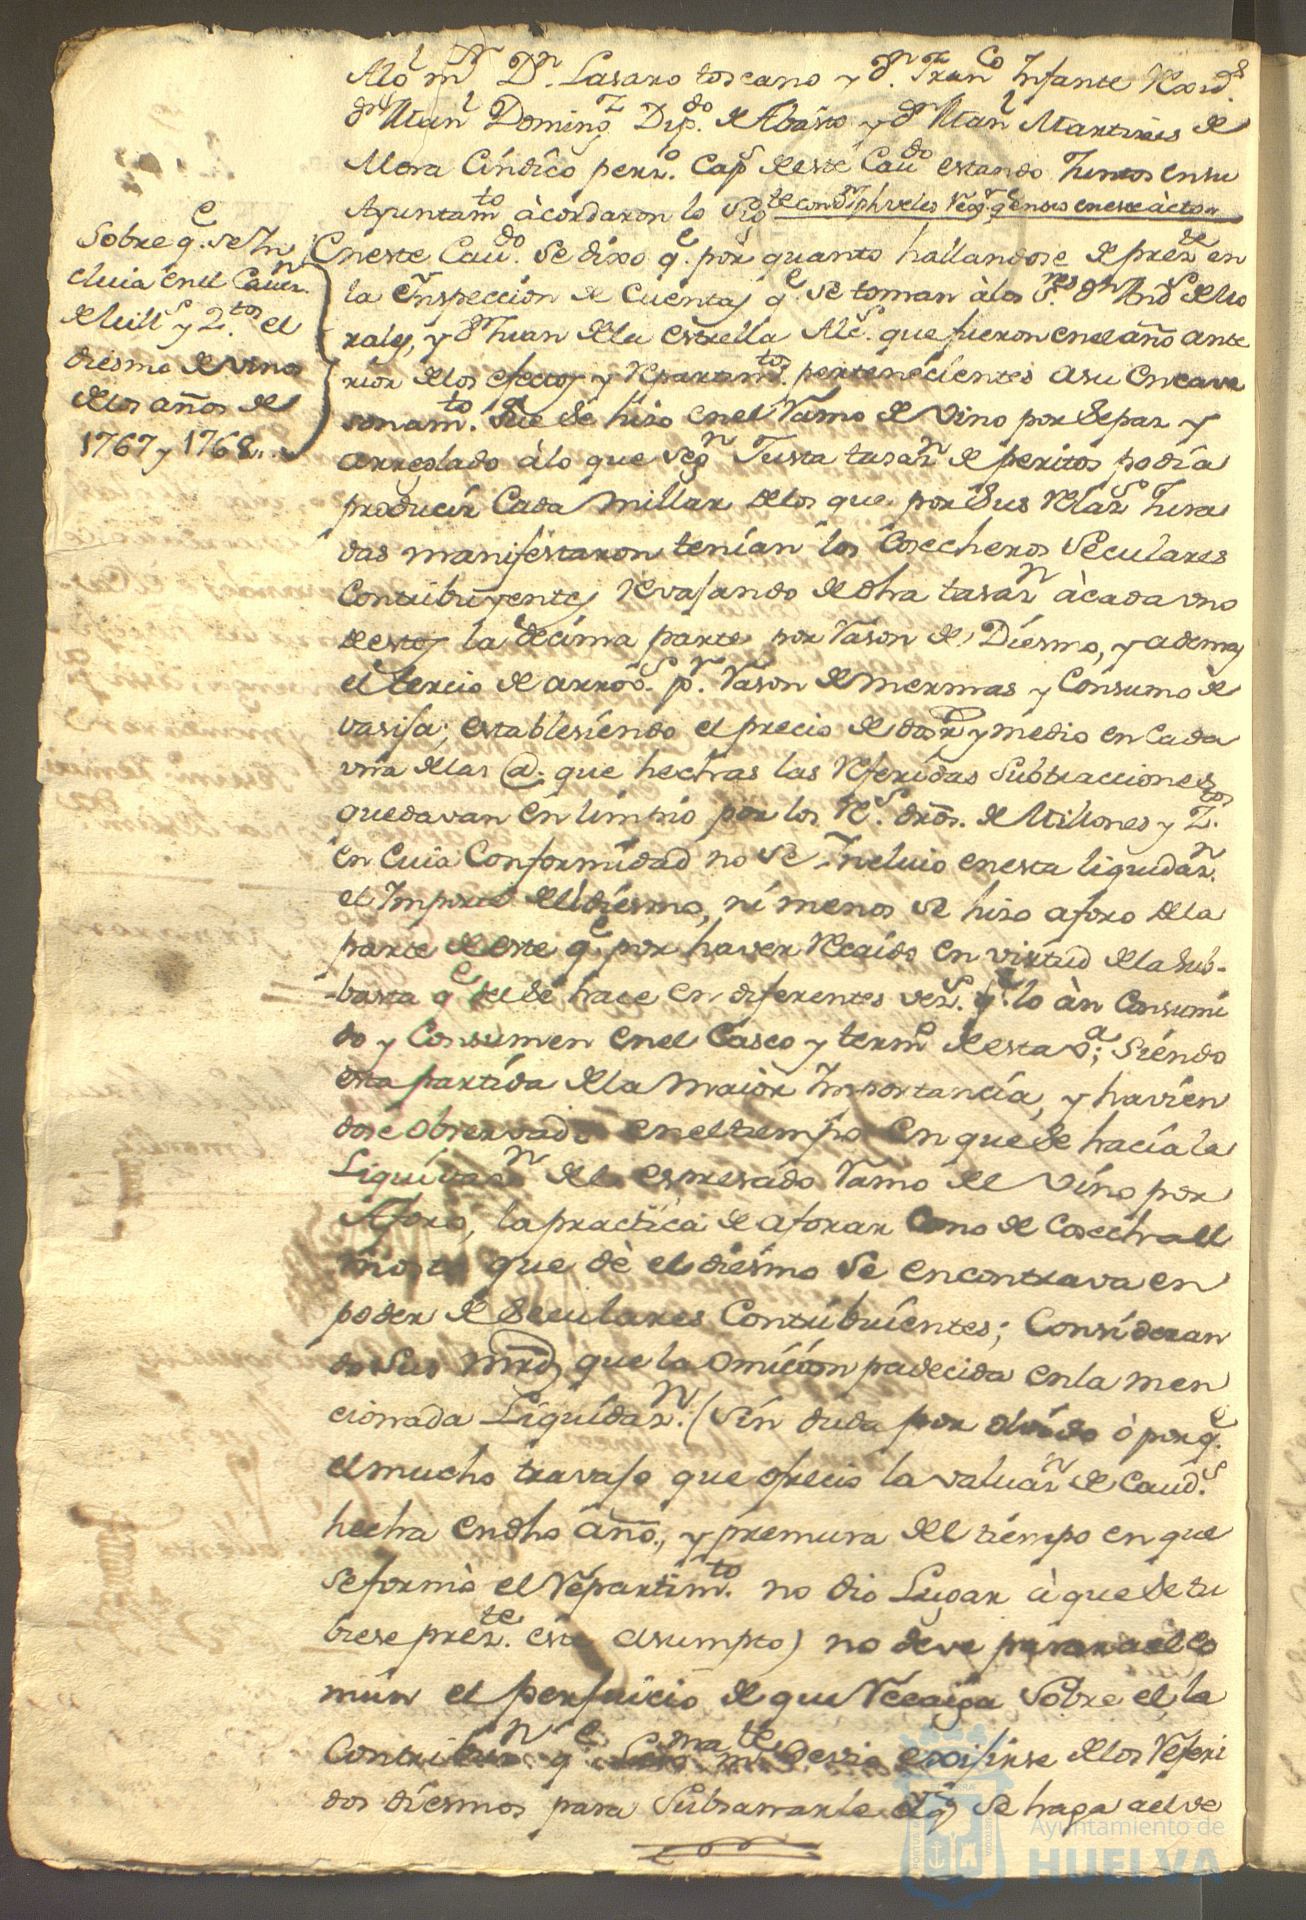 Alg.l m.r D.n Lasaro toscano y d.n Fran.co Ynfante Rexid.s
d.n Man.l Doming.z Dip.do de Abasto y d.n Man.l Martines de
Mora Cindico perz.o Cap.s de este Cav.do estando Juntos en su
Ayuntam.to àcordaron lo sig.te
Sobre q.e se Yn
cluia en el Cauez.n
de Mill.s y 2.tos el
diesmo de vino
de los años de
1767 y 1768..
En este Cav.do se dixo q.e por quanto hallandose de prez.te en
la Ynspeccion de Cuentas q.e se toman à los S.res d.n And.s de Mo
rales, y d.n Juan de la estrella Alc.s que fueron en el año ante
rior de los efectos y Repartim.tos pertenecientes a su Encave
sonam.to que se hiso en el Ramo de vino por Separ y
arreglado àlo que seg.n Justa tasaz.n de peritos podia
producir Cada millar de los que por sus Relaz.s Jura
das manifestaron tenian los Cosecheros Seculares
Contribuyentes Revajando de dha tasaz.n àcada uno
de estos la decima parte por rason de Diesmo, y ademas
el tercio de arrōs. p.r Rason de mermas y Consumo de
vasija; establesiendo el precio de dos r.s y medio en Cada
una de las @. que hechas las Referidas Subtracciones
quedavan en limpio por los R.s drōs. de Millones y 2.tos
en Cuia Conformidad no se Yncluio en esta liquidaz.n
el Ymporte del diesmo, ni menos se hiso aforo de la
parte de este q.e por haver Recaido en virtud de la sub-
-basta q.e de el se hace en diferentes vez.s q.e lo àn Consumi
do y Consumen en el Casco y term.o de esta v.a; Siendo
esta partida de la maior Ymportancia, y havien
dose observado en el tiempo en que se hacia la
Liquidaz.n de el espresado Ramo de vino por
Aforo, la practica de aforar Como de Cosecha el
mosto que dè el diesmo se encontrava en
poder de Seculares Contribuientes; Consideran
do sus mrds que la omicion padecida en la men
cionada Liquidaz.n (sin duda por olvido ò porq.e
el mucho travajo que ofrecio la valuaz.n de Caud.s
hecha en dho año, y premura del tiempo en que
se formò el Repartim.to no dio Lugar à que se tu
biese prez.te este asumpto) no deve parar a el Co
mun el perjuicio de que Recaiga sobre el la
Contribuz.n q.e Lexitima m.te devia exijirse de los Referi
dos diesmos para Subsanarle el q.e se haga a el ve
Ayuntamiento de
HUELVA